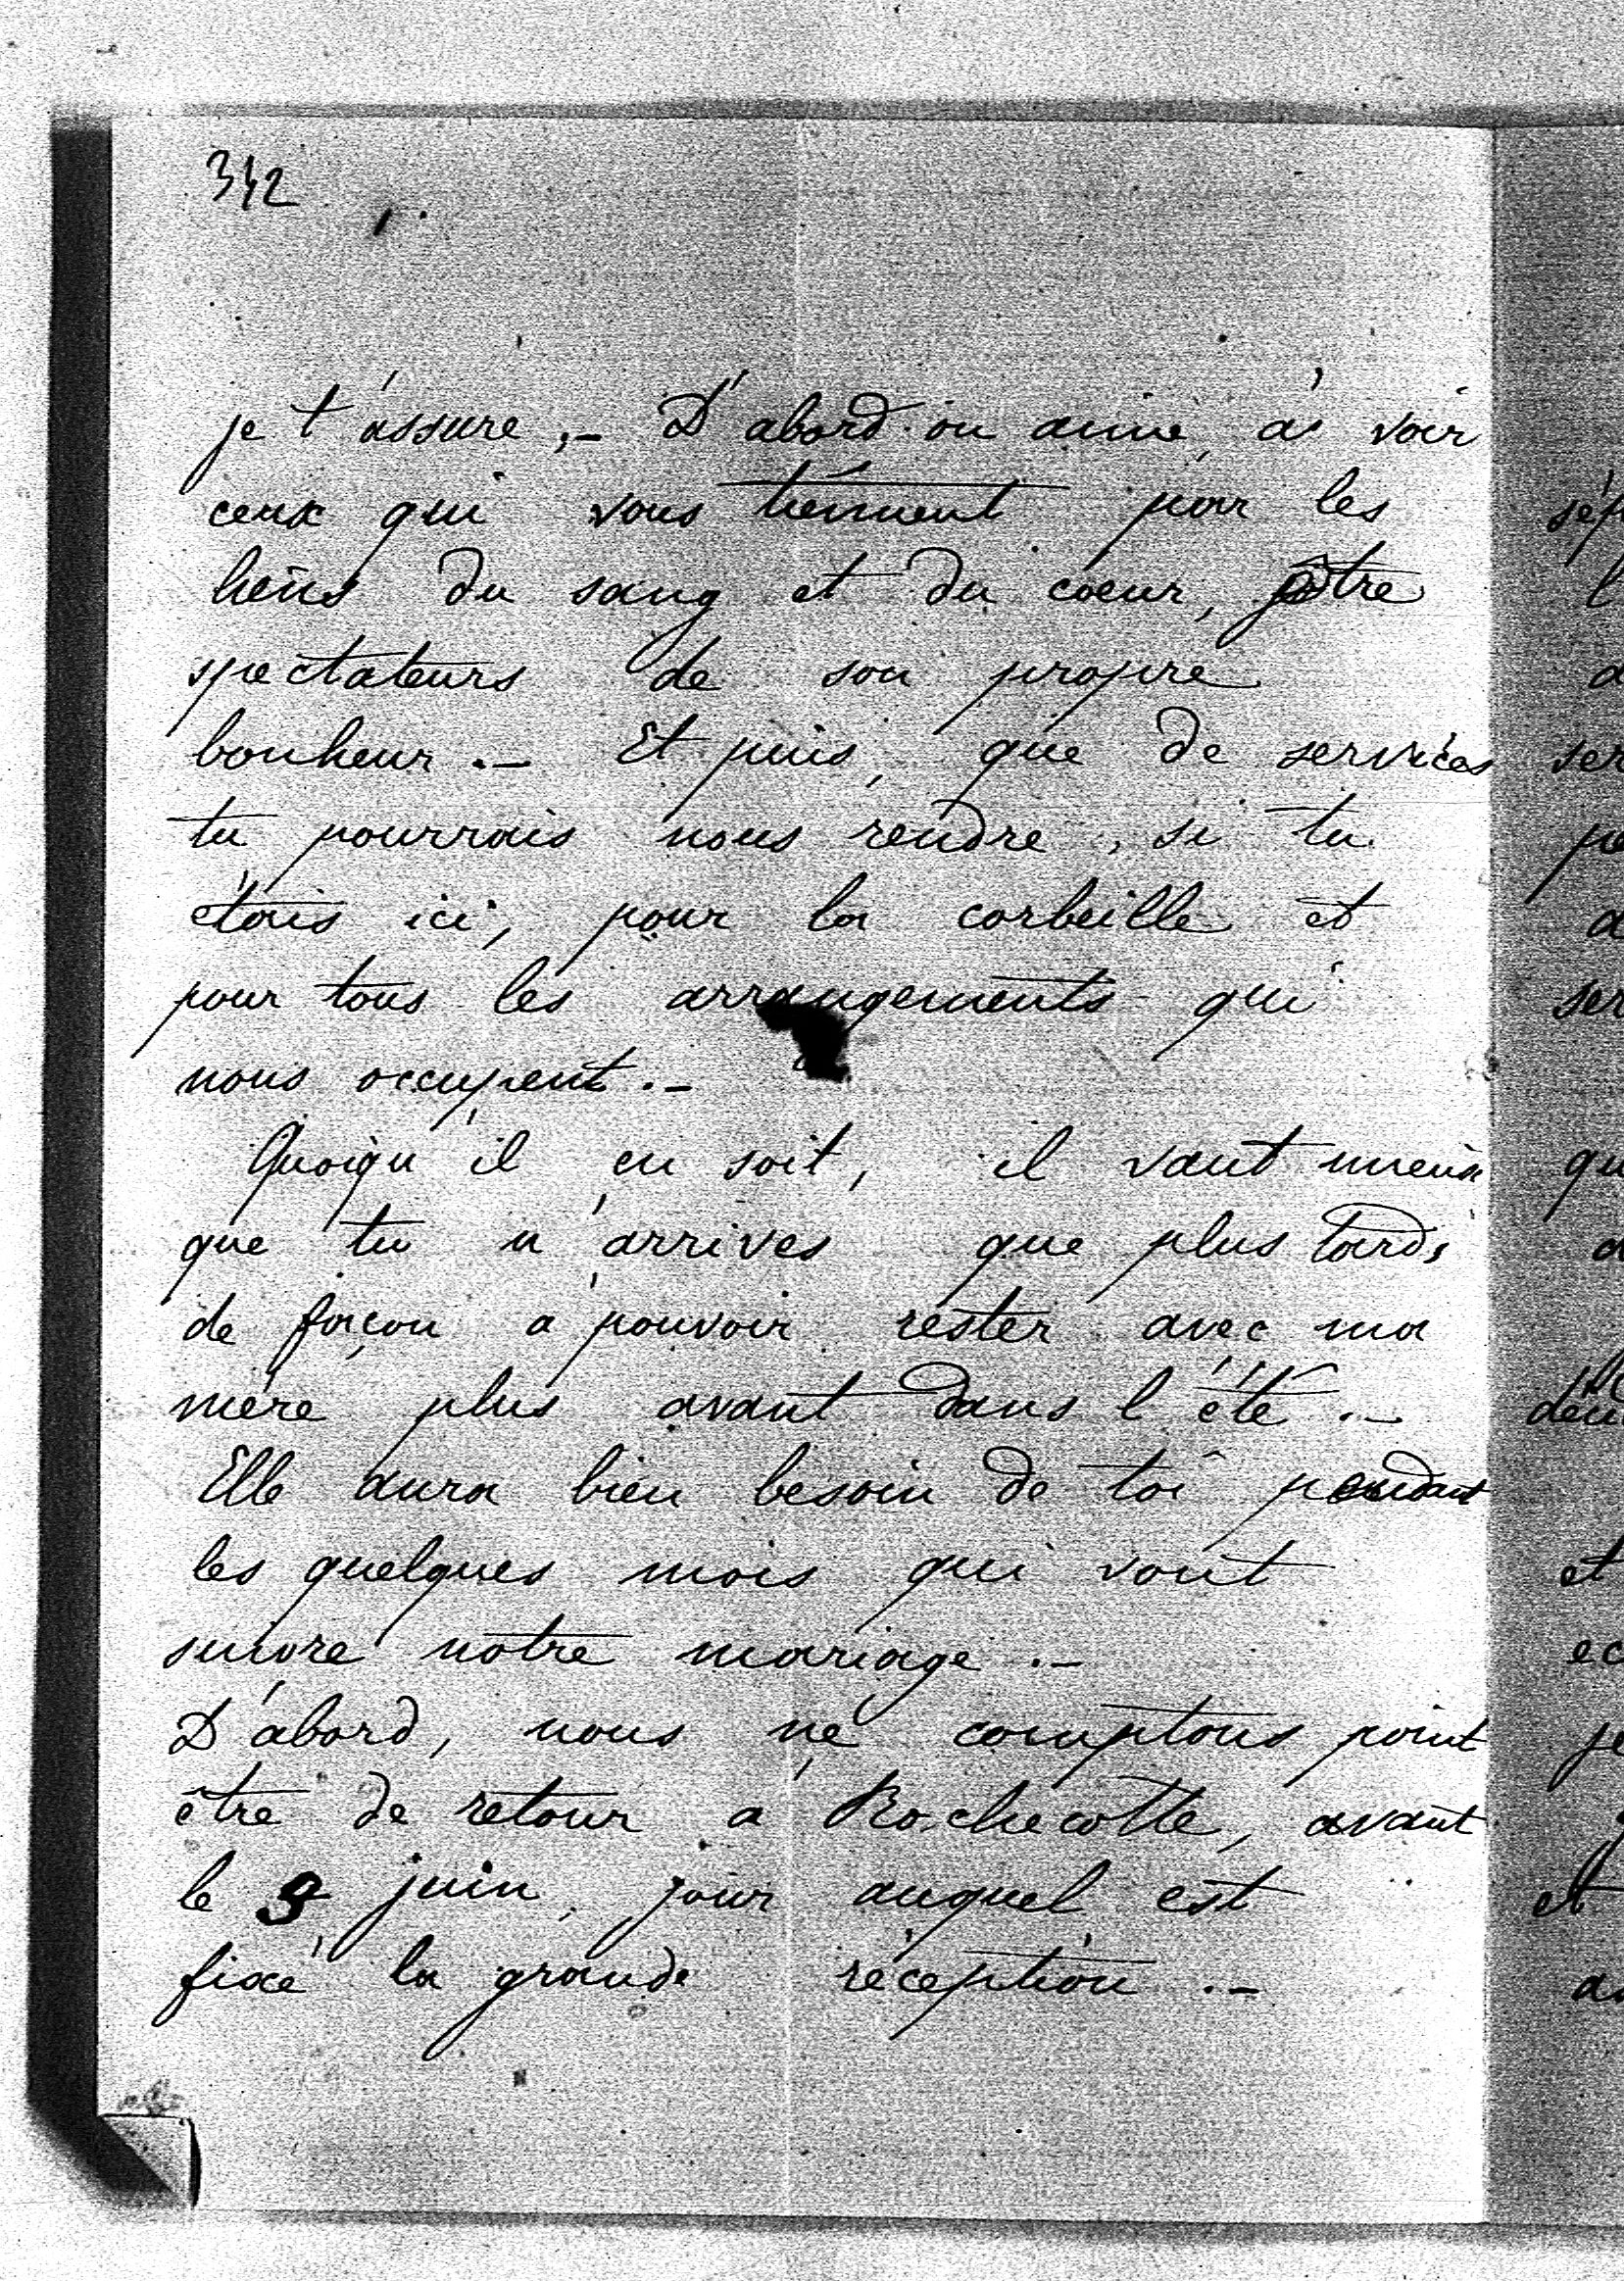 342
je t'assure .- D'abord on aime à voir
ceux qui vous tiennent par les
liens du sang et du coeur, être
spectateurs de son propre
bonheur .- Et puis, que de services
tu pourrais nous rendre, si tu
étais ici, pour la corbeille et
pour tous les arrangements qui
nous occupent .-
Quoiqu'il en soit, il vaut mieux
que tu n'arrives que plus tard,
de façon à pouvoir rester avec ma
mère plus avant dans l'été .-
Elle aura bien besoin de toi pendant
les quelques mois qui vont
suivre notre mariage .-
D'abord, nous ne comptons point
être de retour à Rochecotte, avant
le 9 juin, jour auquel est
fixé la grande réception .-